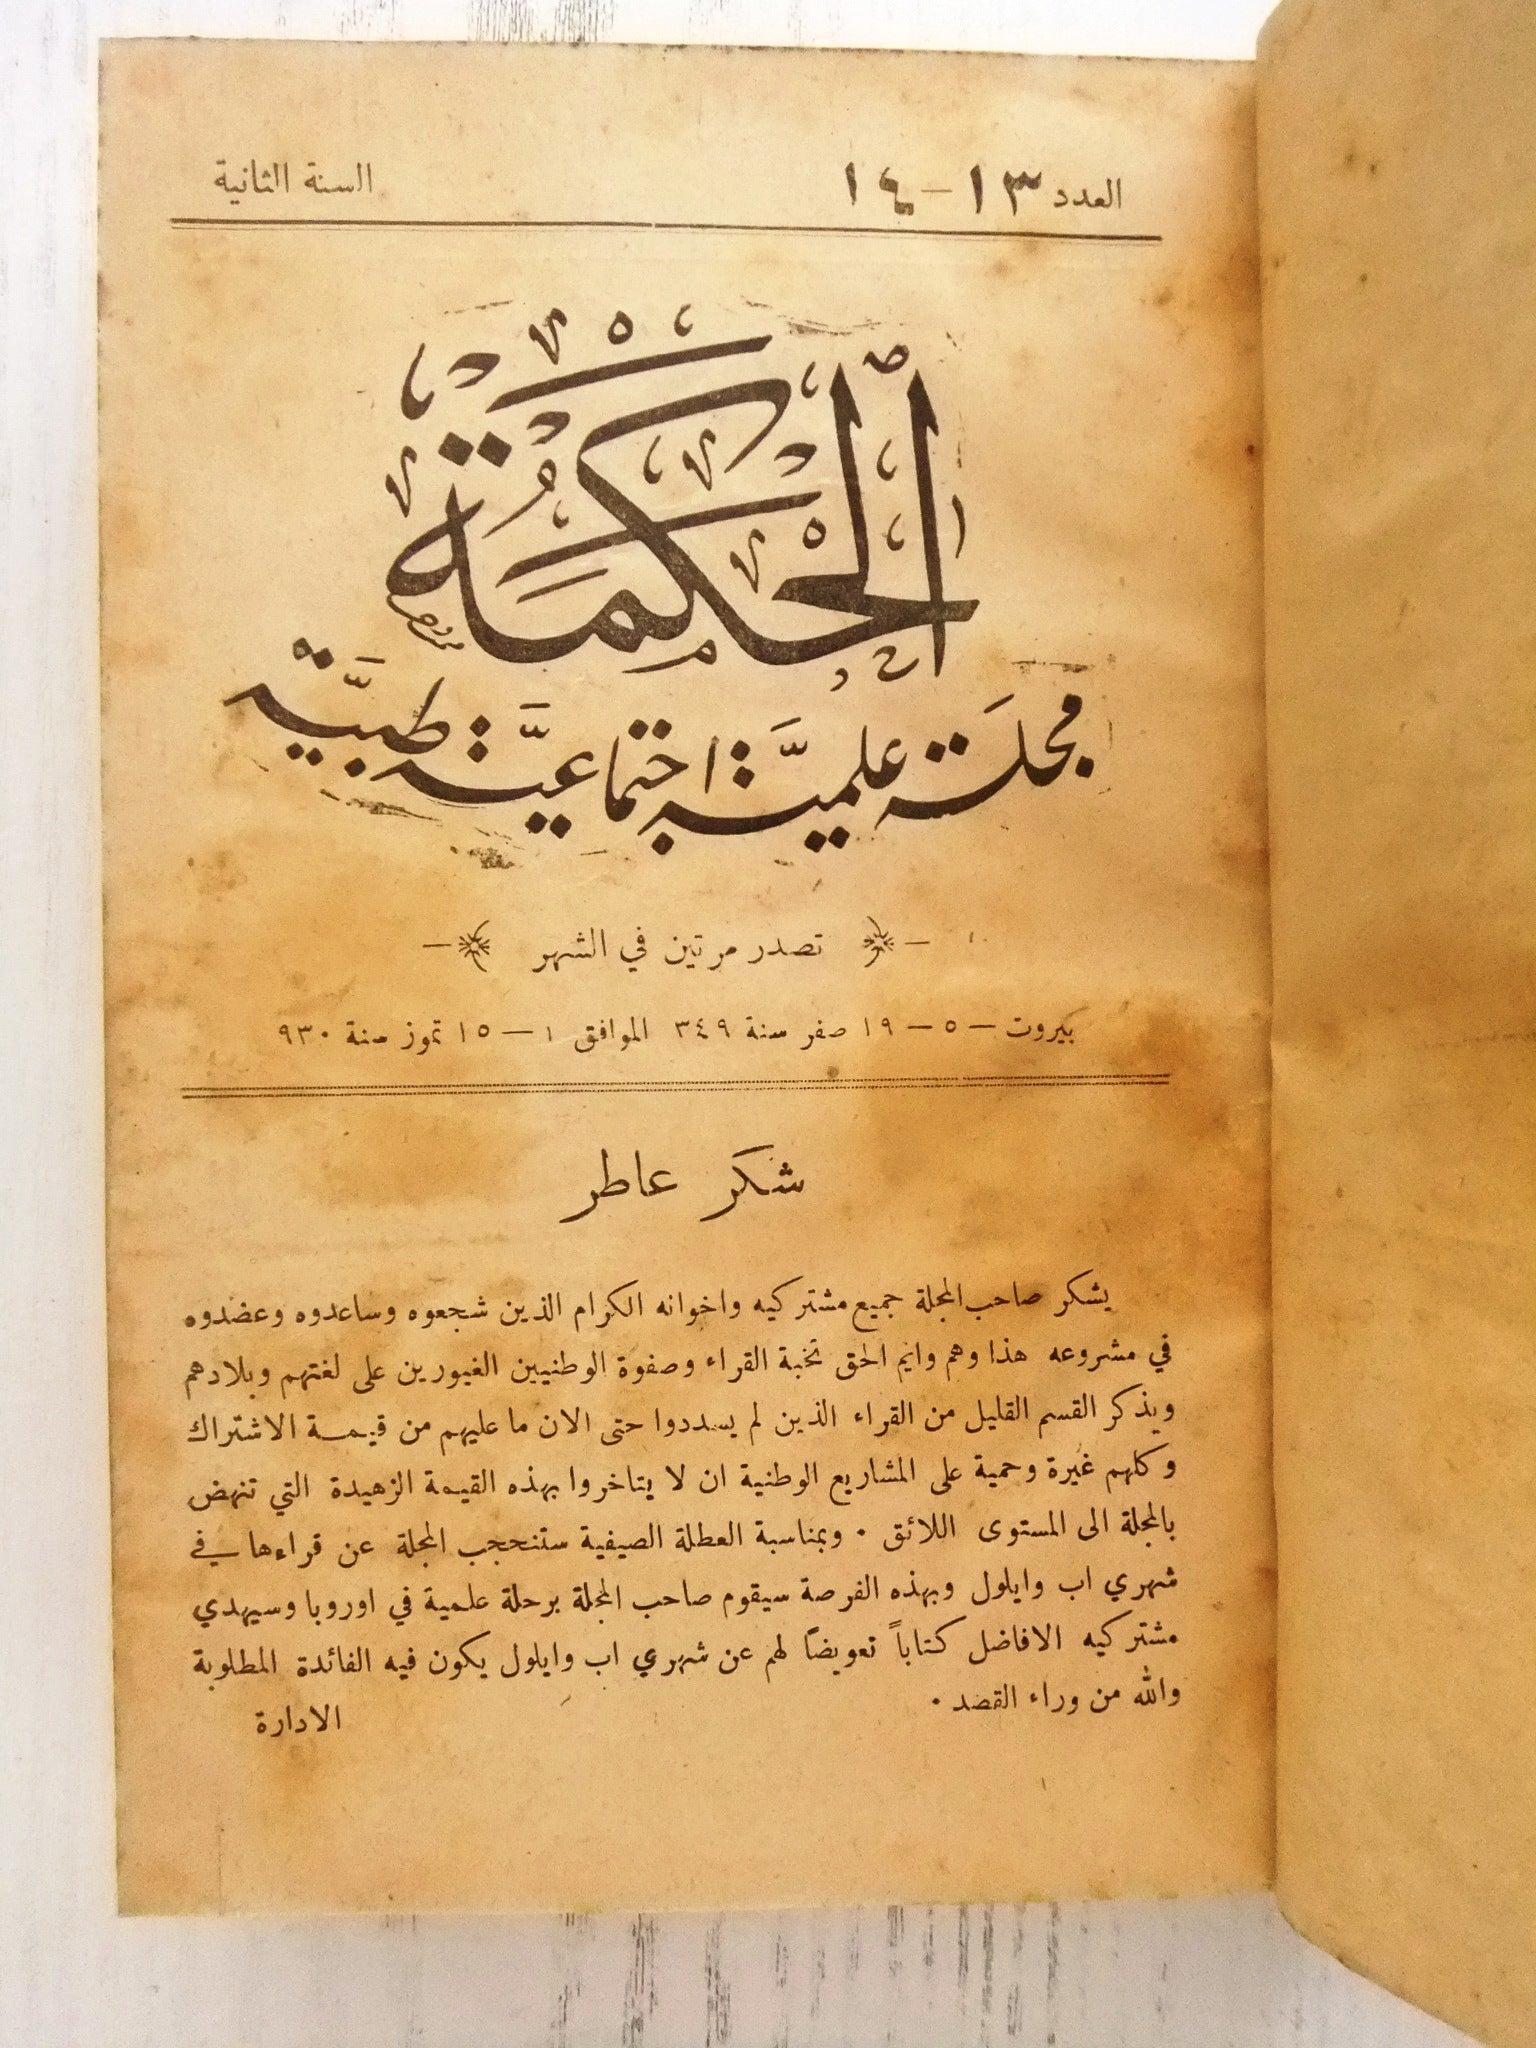 العدد ١٣ – ١٤
السنة الثانية
الحكمة
مجلة علميَّة اجتماعيَّة طبيَّة
تصدر مرتين في الشهر
بيروت – ٥ – ١٩ صفر سنة ٣٤٩ الموافق ١ – ١٥ تموز سنة ٩٣٠
شكر عاطر
يشكر صاحب المجلة جميع مشتركيه واخوانه الكرام الذين شجعوه وساعدوه وعضدوه
في مشروعه هذا وهم وايم الحق نخبة القراء وصفوة الوطنيين الغيورين على لغتهم وبلادهم
ويذكر القسم القليل من القراء الذين لم يسددوا حتى الان ما عليهم من قيمة الاشتراك
وكلهم غيرة وحمية على المشاريع الوطنية ان لا يتاخروا بهذه القيمة الزهيدة التي تنهض
بالمجلة الى المستوى اللائق · وبمناسبة العطلة الصيفية ستنحجب المجلة عن قراءها في
شهري اب وايلول وبهذه الفرصة سيقوم صاحب المجلة برحلة علمية في اوروبا وسيهدي
مشتركيه الافاضل كتاباً تعويضاً لهم عن شهري اب وايلول يكون فيه الفائدة المطلوبة
والله من وراء القصد ·
الادارة